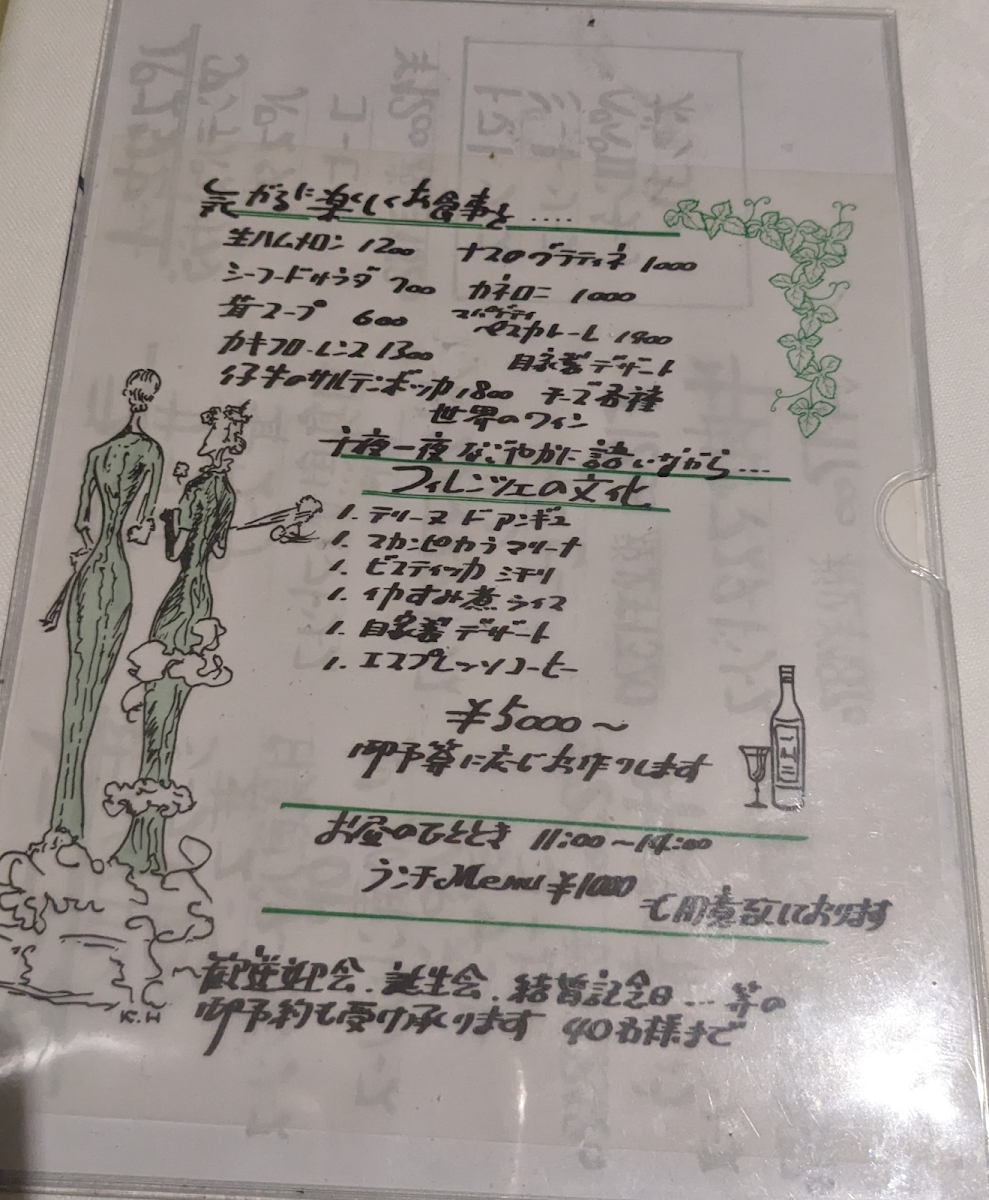 気がるに楽しくお食事を ....
生ハムメロン 1200 ナスのグラティネ 1000
シーフードサラダ 700 カネロニ 1000
茸スープ 600 スパゲティ ペスカトーレ 1400
カキフローレンス 1300 自家製デザート
仔牛のサルテンボッカ 1800 チーズ各種
世界のワイン
千夜一夜なごやかに語いながら...
フィレンツェの文化
1. テリーヌ ド アンギュ
1. スカンピ カラマリーナ
1. ビスティッカ ミチリ
1. イカすみ煮 ライス
1. 自家製 デザート
1. エスプレッソコーヒー
¥5000〜
御予算に応じお作りします
お昼のひととき 11:00〜14:00
ランチMenu ¥1000
も用意致しております
歓送迎会、誕生会、結婚記念日... 等の
御予約も受け承ります 40名様まで
K.H